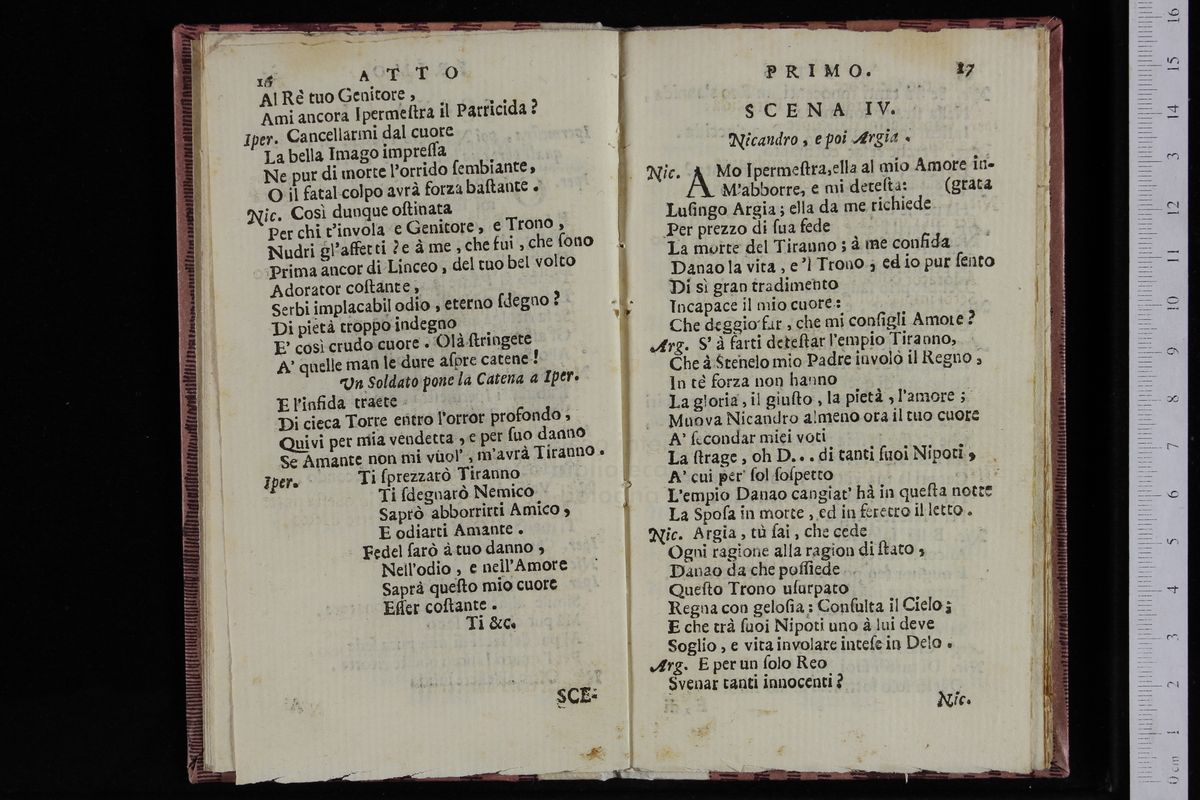 16 ATTO
Al Rè tuo Genitore,
Ami ancora Ipermeſtra il Parricida?
Iper. Cancellarmi dal cuore
La bella Imago impreſſa
Ne pur di morte l'orrido ſembiante,
O il fatal colpo avrà forza baſtante.
Nic. Così dunque oſtinata
Per chi t'invola e Genitore, e Trono,
Nudri gl'affetti? e à me, che fui, che ſono
Prima ancor di Linceo, del tuo bel volto
Adorator coſtante,
Serbi implacabil odio, eterno ſdegno?
Di pietà troppo indegno
E' così crudo cuore. Olà ſtringete
A' quelle man le dure aſpre catene!
Un Soldato pone la Catena a Iper.
E l'infida traete
Di cieca Torre entro l'orror profondo,
Quivi per mia vendetta, e per ſuo danno
Se Amante non mi vuol', m'avrà Tiranno.
Iper. Ti ſprezzarò Tiranno
Ti ſdegnarò Nemico
Saprò abborrirti Amico,
E odiarti Amante.
Fedel ſarò à tuo danno,
Nell'odio, e nell'Amore
Saprà queſto mio cuore
Eſſer coſtante.
Ti &c.
SCE-
PRIMO. 17
SCENA IV.
Nicandro, e poi Argia.
Nic. AMo Ipermeſtra, ella al mio Amore in-
M'abborre, e mi deteſta: (grata
Luſingo Argia; ella da me richiede
Per prezzo di ſua fede
La morte del Tiranno; à me confida
Danao la vita, e 'l Trono, ed io pur ſento
Di sì gran tradimento
Incapace il mio cuore:
Che deggio far, che mi conſigli Amore?
Arg. S' à farti deteſtar l'empio Tiranno,
Che à Stenelo mio Padre involò il Regno,
In tè forza non hanno
La gloria, il giuſto, la pietà, l'amore;
Muova Nicandro almeno ora il tuo cuore
A' ſecondar miei voti
La ſtrage, oh D... di tanti ſuoi Nipoti,
A' cui per ſol ſoſpetto
L'empio Danao cangiat' hà in queſta notte
La Spoſa in morte, ed in feretro il letto.
Nic. Argia, tù ſai, che cede
Ogni ragione alla ragion di ſtato,
Danao da che poſſiede
Queſto Trono uſurpato
Regna con geloſia: Conſulta il Cielo;
E che trà ſuoi Nipoti uno à lui deve
Soglio, e vita involare inteſe in Delo.
Arg. E per un ſolo Reo
Svenar tanti innocenti?
Nic.
0 cm 1 2 3 4 5 6 7 8 9 10 11 12 13 14 15 16